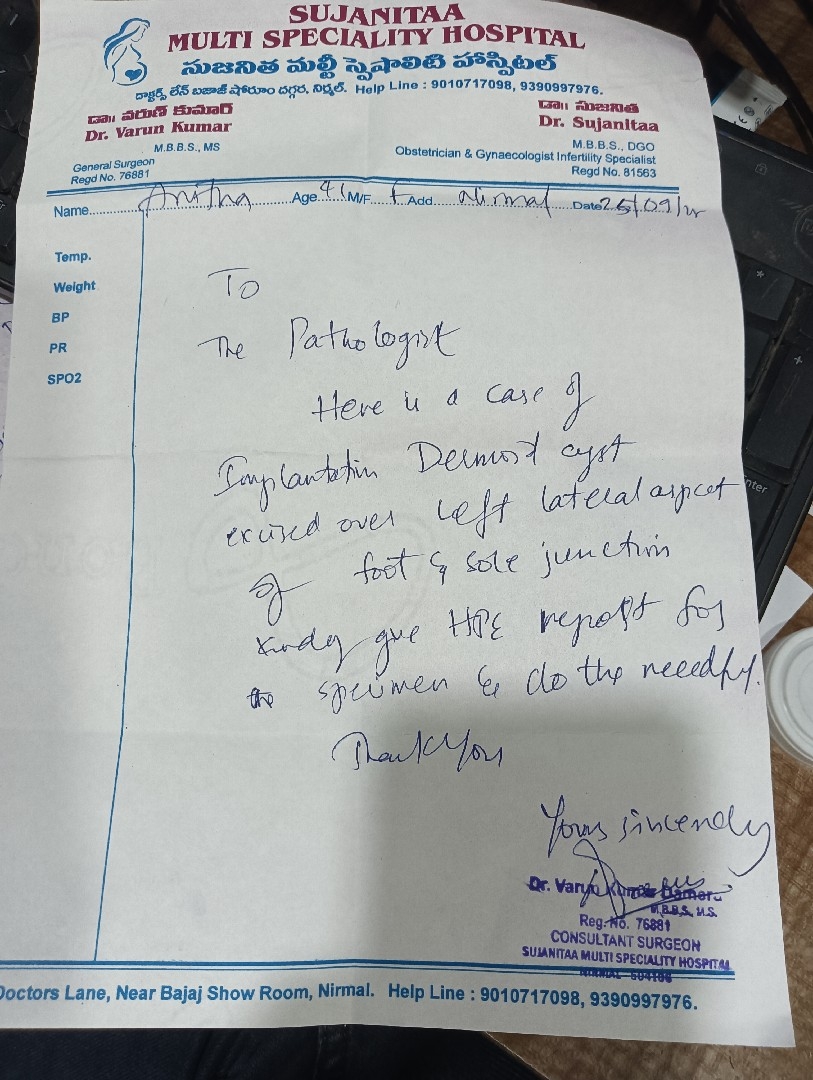 SUJANITAA
MULTI SPECIALITY HOSPITAL
సుజనిత మల్టీ స్పెషాలిటి హాస్పిటల్
డాక్టర్స్ లేన్ బజాజ్ షోరూం దగ్గర, నిర్మల్. Help Line : 9010717098, 9390997976.
డా॥ వరుణ్ కుమార్
Dr. Varun Kumar
M.B.B.S., MS
General Surgeon
Regd No. 76881
డా॥ సుజనిత
Dr. Sujanitaa
M.B.B.S., DGO
Obstetrician & Gynaecologist Infertility Specialist
Regd No. 81563
Name Anitha Age 41 M/F F Add. Nirmal Date 25/09/
Temp.
Weight
BP
PR
SPO2
To
The Pathologist
Here is a case of
Implantation Dermoid cyst
excised over left lateral aspect
of foot & sole junction
kindly give HPE report for
the specimen & do the needful.
Thank You
Yours sincerely
Dr. Varun Kumar
M.B.B.S., M.S.
Reg. No. 76881
CONSULTANT SURGEON
SUJANITAA MULTI SPECIALITY HOSPITAL
NIRMAL-504106
Doctors Lane, Near Bajaj Show Room, Nirmal. Help Line : 9010717098, 9390997976.
enter